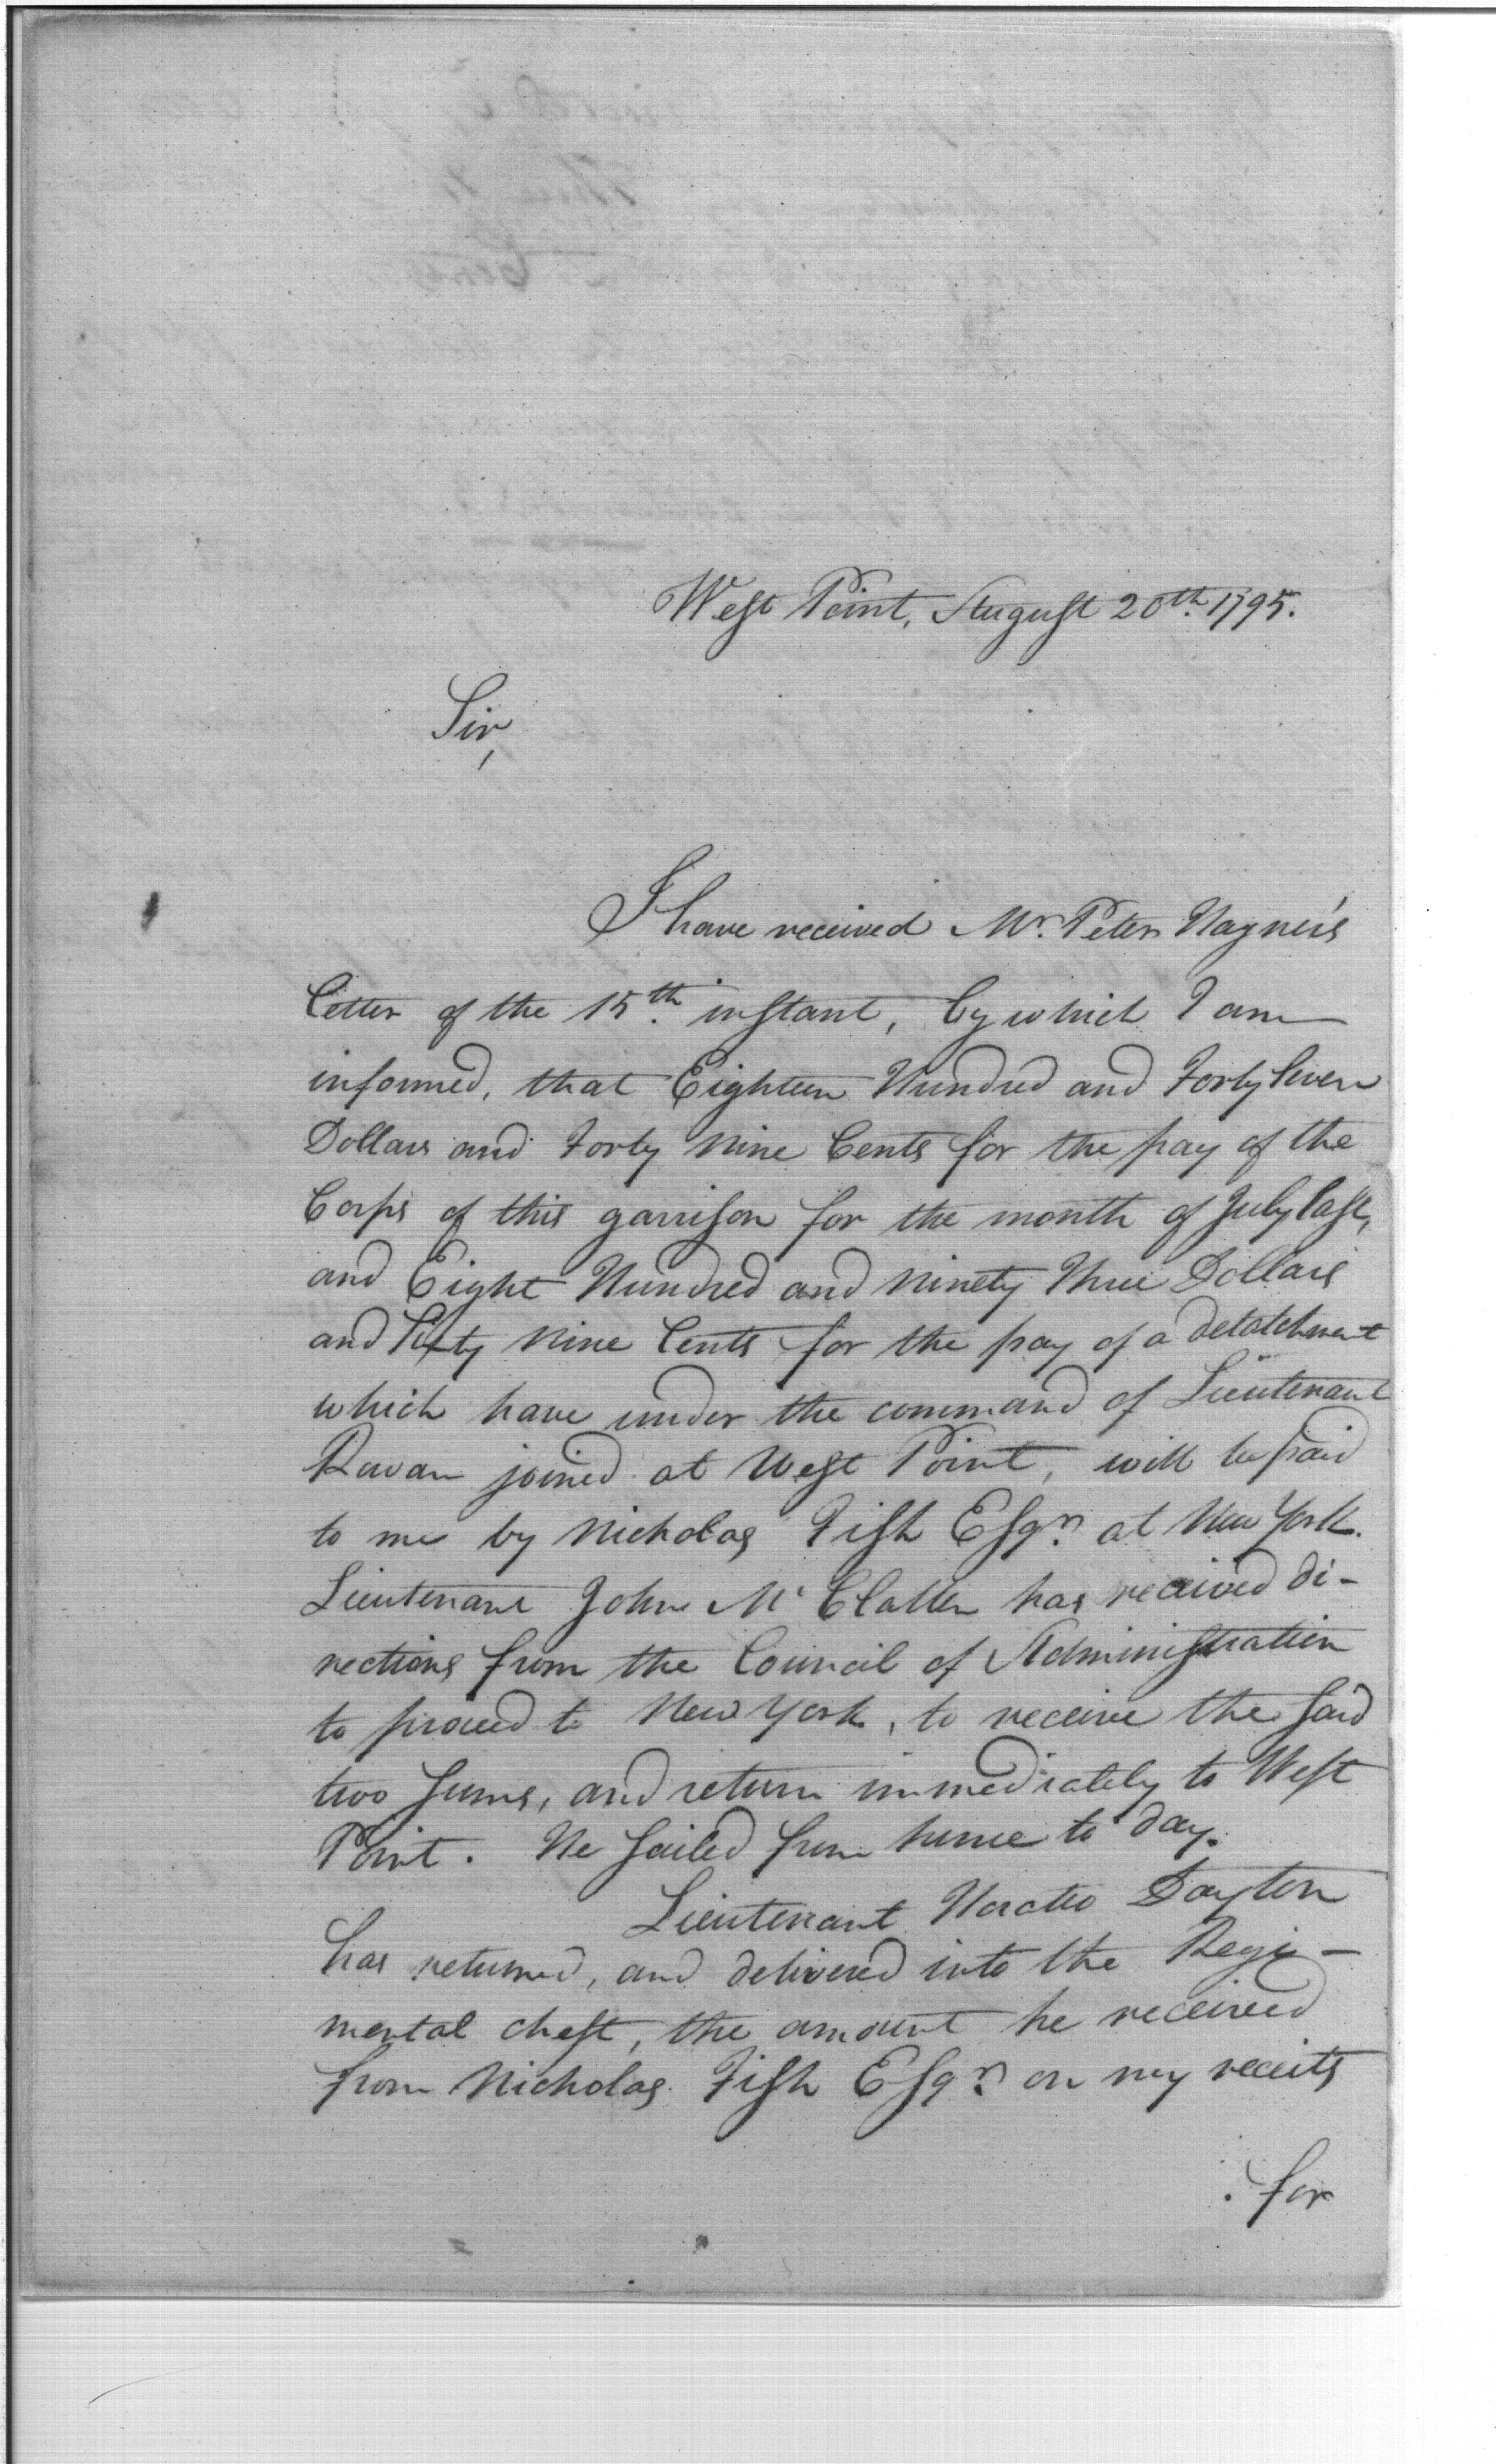 West Point, August 20th. 1795.
Sir,
I have received Mr. Peter Hagner's
letter of the 15th. instant, by which I am
informed, that Eighteen Hundred and Forty Seven
Dollars and Forty Nine Cents for the pay of the
Corps of this garrison for the month of July last,
and Eight Hundred and Ninety Three Dollars
and Sixty Nine Cents for the pay of a detatchment
which have under the command of Lieutenant
Rowan joined at West Point, will be paid
to me by Nicholas Fish Esqr. at New York.
Lieutenant John Mc Clallen has received di-
rections from the Council of Administration
to proceed to New York, to receive the said
two sums, and return immediately to West
Point. He sailed from hence to day.
Lieutenant Horatio Dayton
has returned, and delivered into the Regi-
mental chest, the amount he received
from Nicholas Fish Esqr. on my receits
for